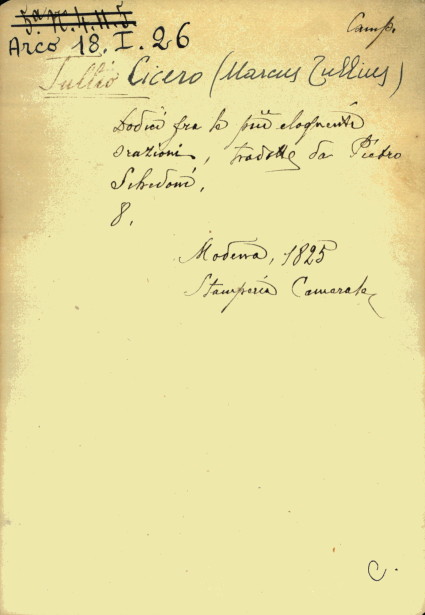 Z.a. N. 4. 11. 5
Camp.
Arco 18. I. 26
Tullio Cicero (Marcus Tullius)
Dodici fra le più eloquenti
orazioni, tradotte da Pietro
Schedoni,
8.
Modena, 1825
Stamperia Camerale
C.